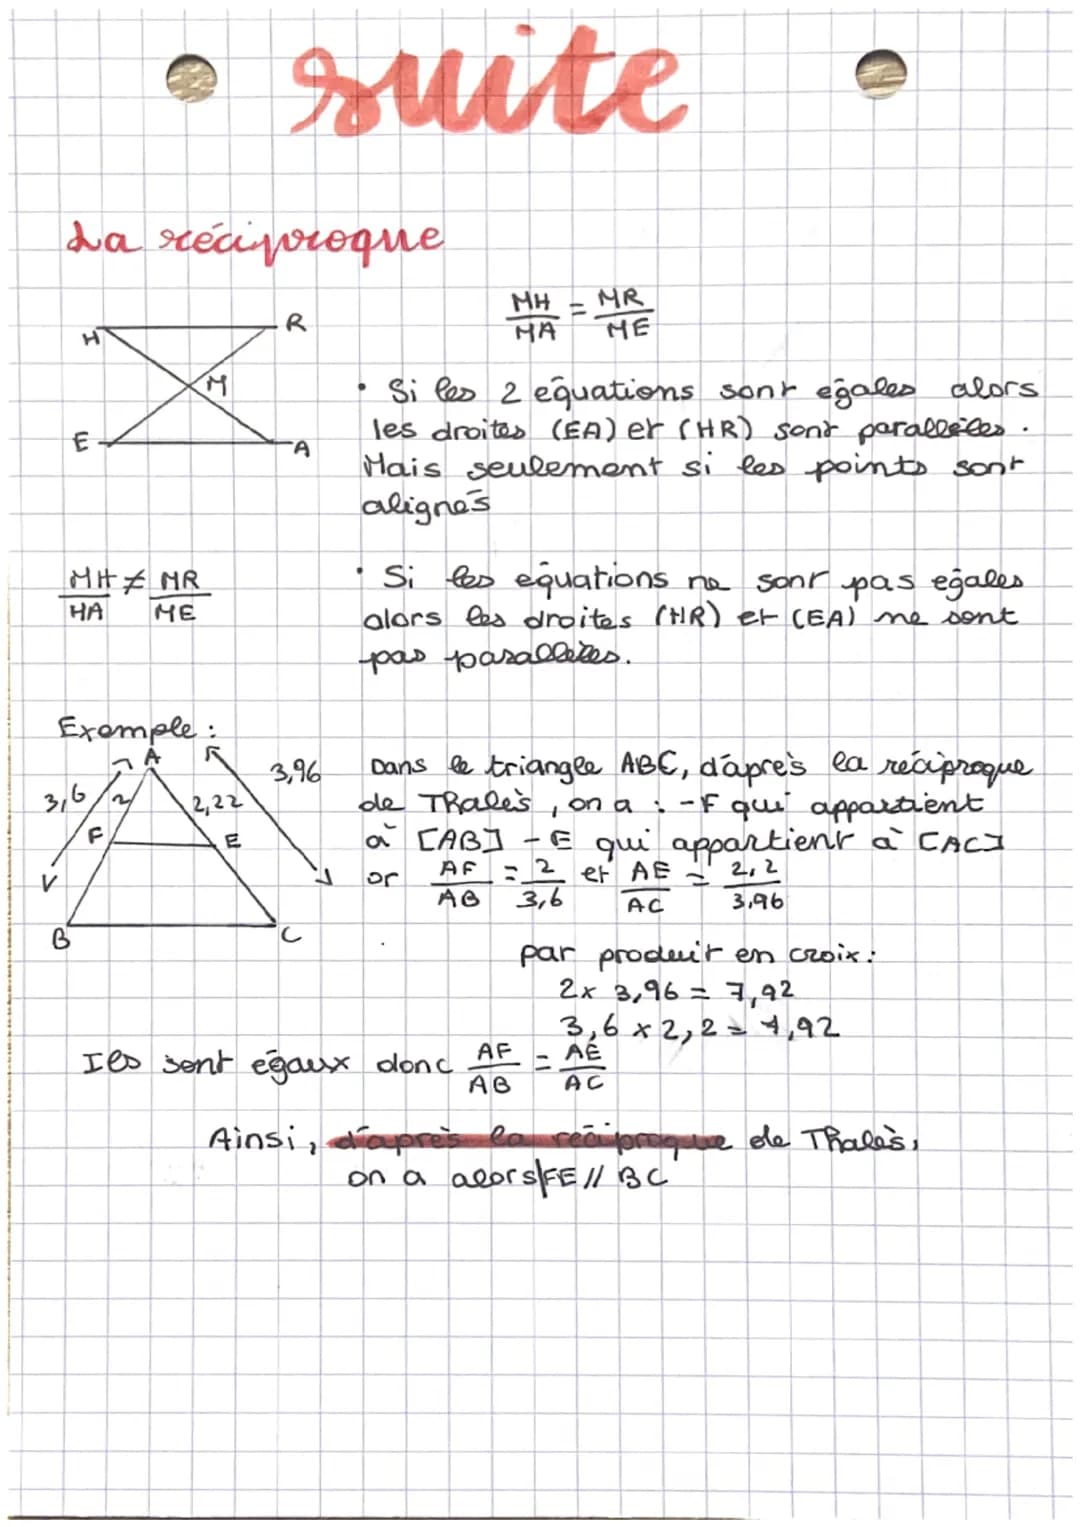 suite
La réciproque
H R
M
E A
MH/MA = MR/ME
• Si les 2 équations sont égales alors
les droites (EA) et (HR) sont parallèles.
Mais seulement si les points sont
alignés
MH/HA ≠ MR/ME
• Si les équations ne sont pas égales
alors les droites (HR) et (EA) ne sont
pas parallèles.
Exemple :
A
3,6 2 2,22 3,96
F E
B C
Dans le triangle ABC, d'après la réciproque
de Thalès, on a : - F qui appartient
à [AB] - E qui appartient à [AC]
or AF/AB = 2/3,6 et AE/AC = 2,2/3,96
par produit en croix :
2 x 3,96 = 7,92
3,6 x 2,2 = 7,92
Ils sont égaux donc AF/AB = AE/AC
Ainsi, d'après la réciproque de Thalès,
on a alors FE // BC